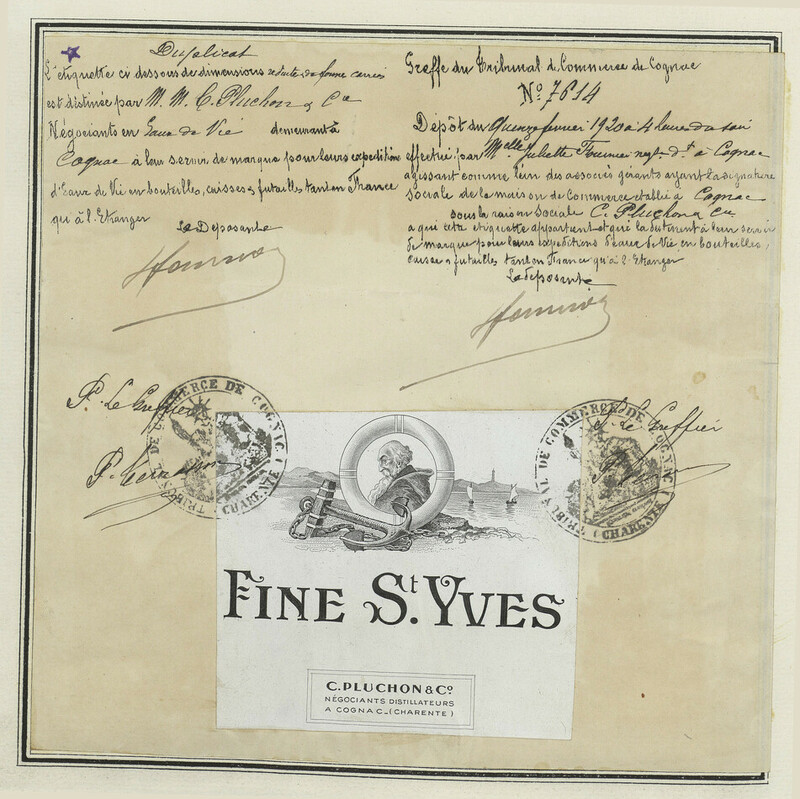 Duplicat
L'etiquette ci dessous de dimensions reduite, de forme carrée
est distinée par M. M. C. Pluchon & Cie
Négociants en Eaux de Vie demeurant à
Cognac à leur servir de marque pour leurs expeditions
d'Eaux de Vie en bouteilles, caisses & futailles tant en France
qu'à l'Etranger
La Déposante
Greffe du Tribunal de Commerce de Cognac
No 7614
Dépôt du Quinze fevrier 1920 à 4 heures du soir
effectué par Melle Juliette Fournier negte dt à Cognac
agissant comme l'un des associés gérants ayant la signature
sociale de la maison de Commerce etablie à Cognac
sous la raison sociale C. Pluchon & Cie
a qui cette etiquette appartient et qui la destinent à leur servir
de marque pour leurs expeditions d'eaux de Vie en bouteilles,
caisses & futailles tant en France qu'à l'Etranger
La deposante
P. Le Greffier
TRIBUNAL DE COMMERCE DE COGNAC
(CHARENTE)
P. Le Greffier
TRIBUNAL DE COMMERCE DE COGNAC
(CHARENTE)
FINE St. YVES
C. PLUCHON & Co
NÉGOCIANTS DISTILLATEURS
A COGNAC_(CHARENTE)